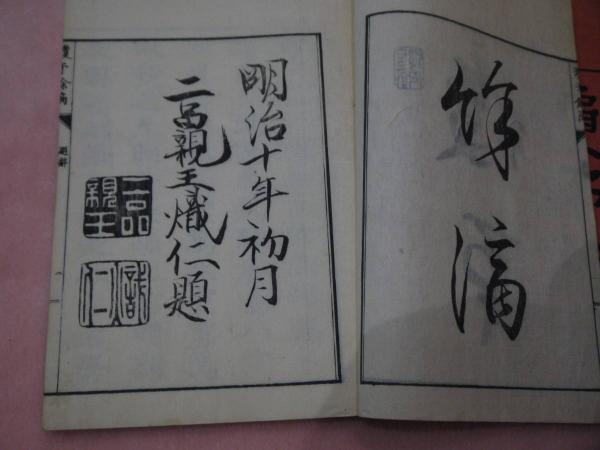 餘滴
明治十年初月
二品親王熾仁題
二品
親王
熾仁
題辭